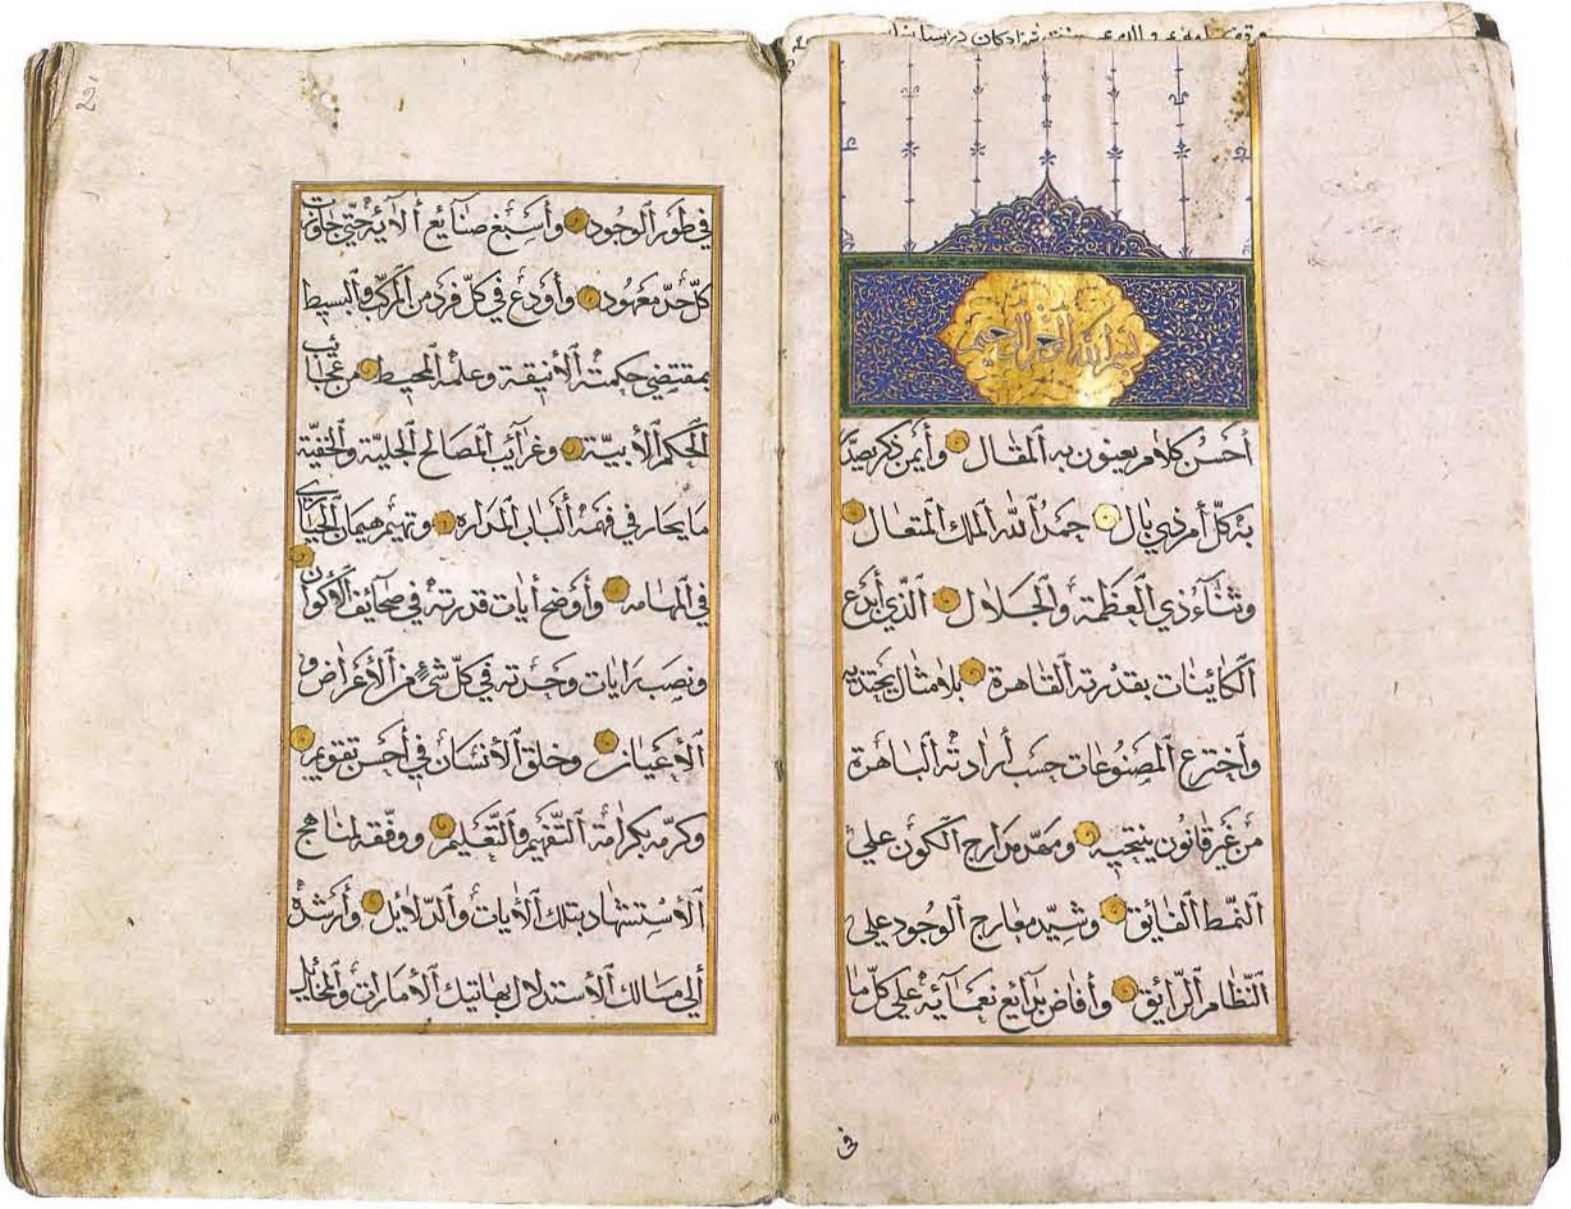 بسم الله الرحمن الرحيم
أحسن كلام يعنون به المقال وأيمن ذكر يصدّر
به كلّ أمر ذي بال حمد الله الملك المتعال
وثناء ذي العظمة والجلال الذي أبدع
الكائينات بقدرته القاهرة بلا مثال يحتذيه
واخترع المصنوعات حسب أرادته الباهرة
من غير قانون ينتحيه ومهّد مدارج الكون على
النمط الفايق وشيّد معارج الوجود على
النّظام الرّائيق وأفاض بدائع نعمائه على كلّ ما
في
2
في طور الوجود وأسبغ صنايع ألايه حتى جاوزت
كلّ حدّ معهود وأودع في كلّ فرد من المركّب والبسيط
بمقتضى حكمته الأنيقة وعلمه المحيط من عجائب
الحكم الأبيّة وغرائب المصالح الجليّة والخفيّة
ما يحار في فهمه ألباب المداره وتهيم هيمان الحيارى
في المهامه وأوضح أيات قدرته في صحائف الأكوان
ونصب رايات وحدته في كلّ شيء من الأعراض و
الأعيان وخلق الأنسان في أحسن تقويم
وكرّمه بكرامة التّفهيم والتّعليم ووفّقه لمناهج
الأستشهاد بتلك الأيات والدّلايل وأرشده
ألى مسالك الأستدلال بهاتيك الأمارات والمخايل